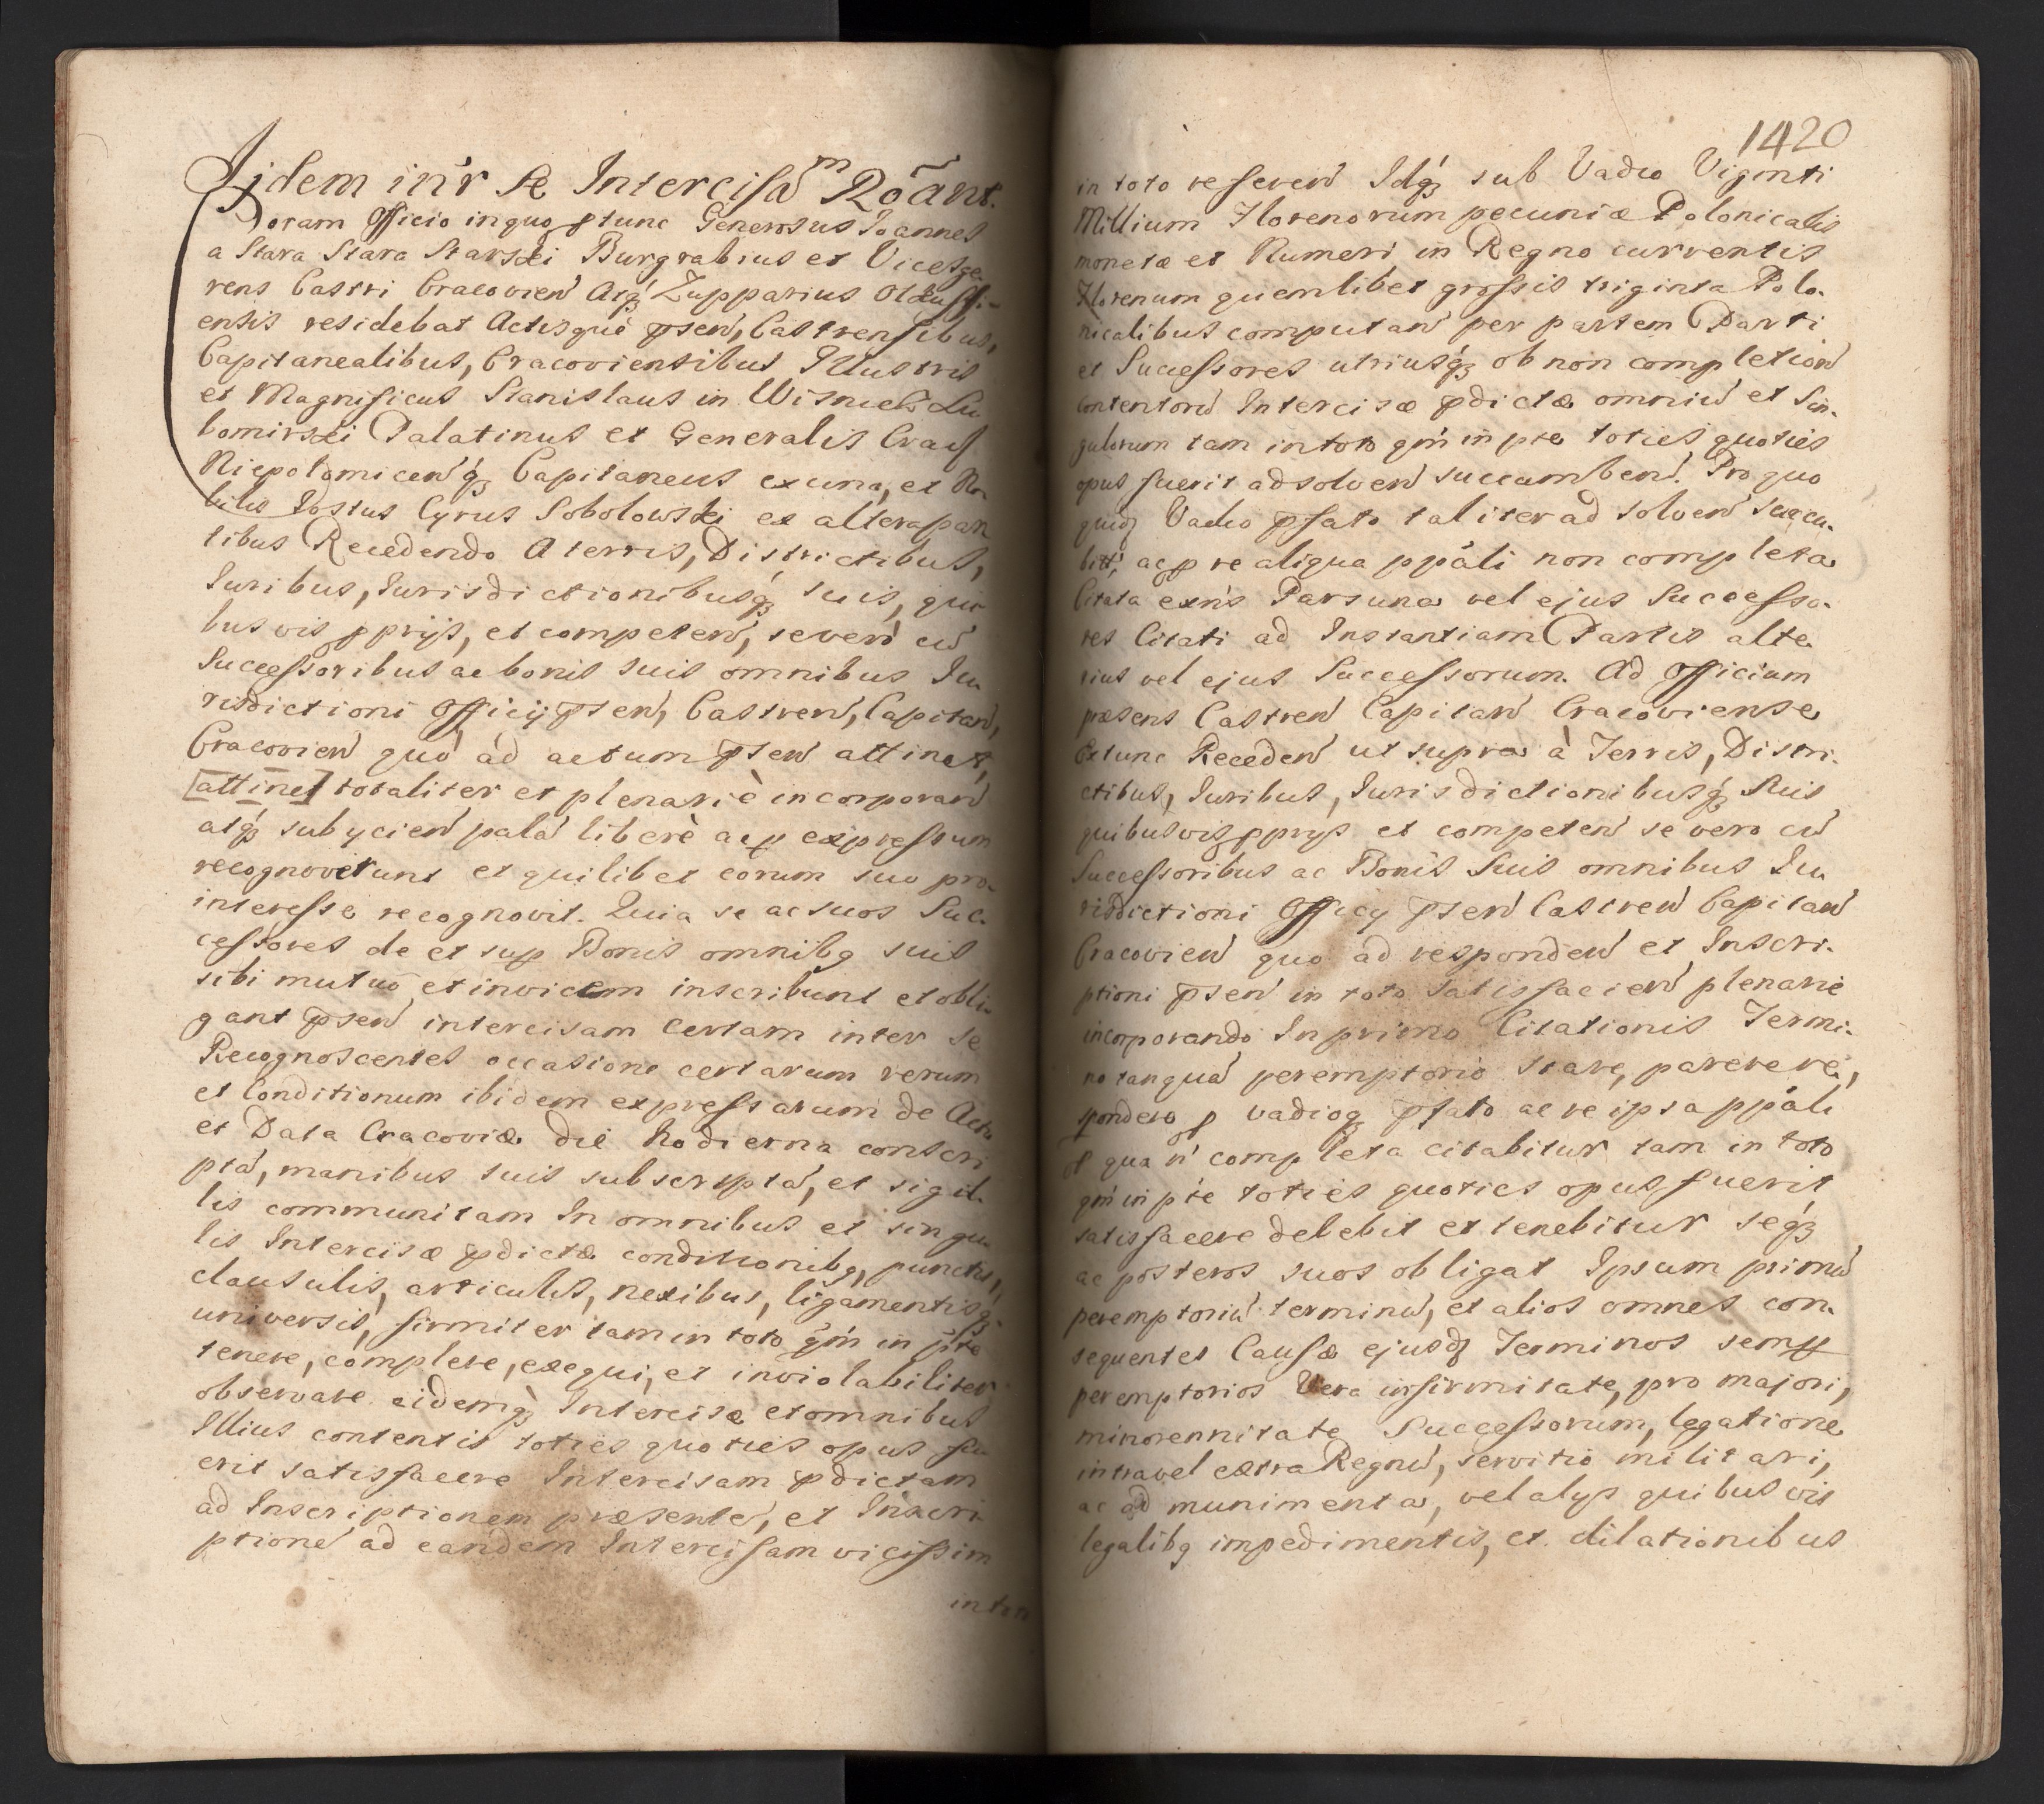 Ijdem in'r se Intercisam Rōant.
Coram Officio in quo p tunc Generosus Joannes
a Stara Stara Starski Burgrabius et Vicesge
rens Castri Cracovien Atq3 Zupparius Olkussi-
ensis residebat Actisque psen, Castrensibus,
Capitanealibus, Cracoviensibus Illustris
et Magnificus Stanislaus in Wisnicz Lu
bomirski Palatinus et Generalis Crac
Niepolomicenq3 Capitaneus ex una, et No
bilis Iostus Cyrus Sobolowski ex altera par
tibus Recedendo A terris, Districtibus,
Iuribus, Iurisdictionibusq3 suis, qui
busvis pprijs, et competen, se vero cu
Successoribus ac bonis suis omnibus Iu
risdictioni Officij psen, Castren, Capitan,
Cracovien quo ad actum psen attinet,
[attinet] totaliter et plenariè incorporan
atq3 subycien palá liberè ac p expressum
recognoverunt et quilibet eorum suo pro
interesse recognovit. Quia se ac suos Suc-
cessores de et sup Bonis omnibq suis
sibi mutuo et invicem inscribunt et obli
gant psen intercisam certam inter se
Recognoscentes occasione certarum rerum
et Conditionum ibidem expressarum de Actu
et Data Cracoviæ die hodierna conscri
ptá, manibus suis subscriptá, et sigil-
lis communitam In omnibus et singu
lis Intercisæ pdictæ conditionibq, punctis,
clausulis, articulis, nexibus, ligamentisq3
universis, firmiter tam in toto qm in pte
tenere, complere, exequi, et inviolabiliter
observare eidemq3 Intercisæ et omnibus
Illius contentis toties quoties opus fu
erit satisfacere Intercisam pdictam
ad Inscriptionem præsente, et Inscri
ptione ad eandem Intercisam vicissim
in toto
1420
in toto referen Idq3 sub Vadio Viginti
Millium Florenorum pecuniæ Polonicalis
monetæ et Numeri in Regno currentis
Florenum quemlibet grossis triginta Polo-
nicalibus computan per partem Parti
et Successores utriusq3 ob non completion
contentoru Intercisæ pdictæ omniu et Sin-
gulorum tam in toto qm in pte toties quoties
opus fuerit adsolven succumben. Pro quo
quid Vadio psato taliter ad solven succu-
bitt, ac p re aliqua ppáli non completa
Citata exn's Pars una vel ejus Successo-
res Citati ad Instantiam Partis alte
rius vel ejus Successorum. Ad Officium
præsens Castren Capitan Cracoviense
Extunc Receden ut supra à Terris, Distri-
ctibus, Iuribus, Iurisdictionibusq3 Suis
quibusvis pprys et competen se vero cu
Successoribus ac Bonis Suis omnibus Iu
risdictioni Officy psen Castren Capitan
Cracovien quo ad responden et Inscri-
ptioni psen in toto satisfacien plenarie
incorporando In primo Citationis Termi-
no tanquá peremptorio stare, parere re,
spondere p vadioq3 psato ac re ipsa ppáli
p qua n completa citabitur tam in toto
qm in pte toties quoties opus fuerit
satisfacere debebit et tenebitur seq3
ac posteros suos obligat Ipsum primu
peremptoriu terminu, et alios omnes con-
sequentes Causæ ejusd Terminos semp
peremptorios Vera infirmitate, pro majori,
minorennitate Successorum, legatione
intra vel extra Regnu, servitio militari,
ac ad munimenta, vel alys quibusvis
legalibq impedimentis, et dilationibus